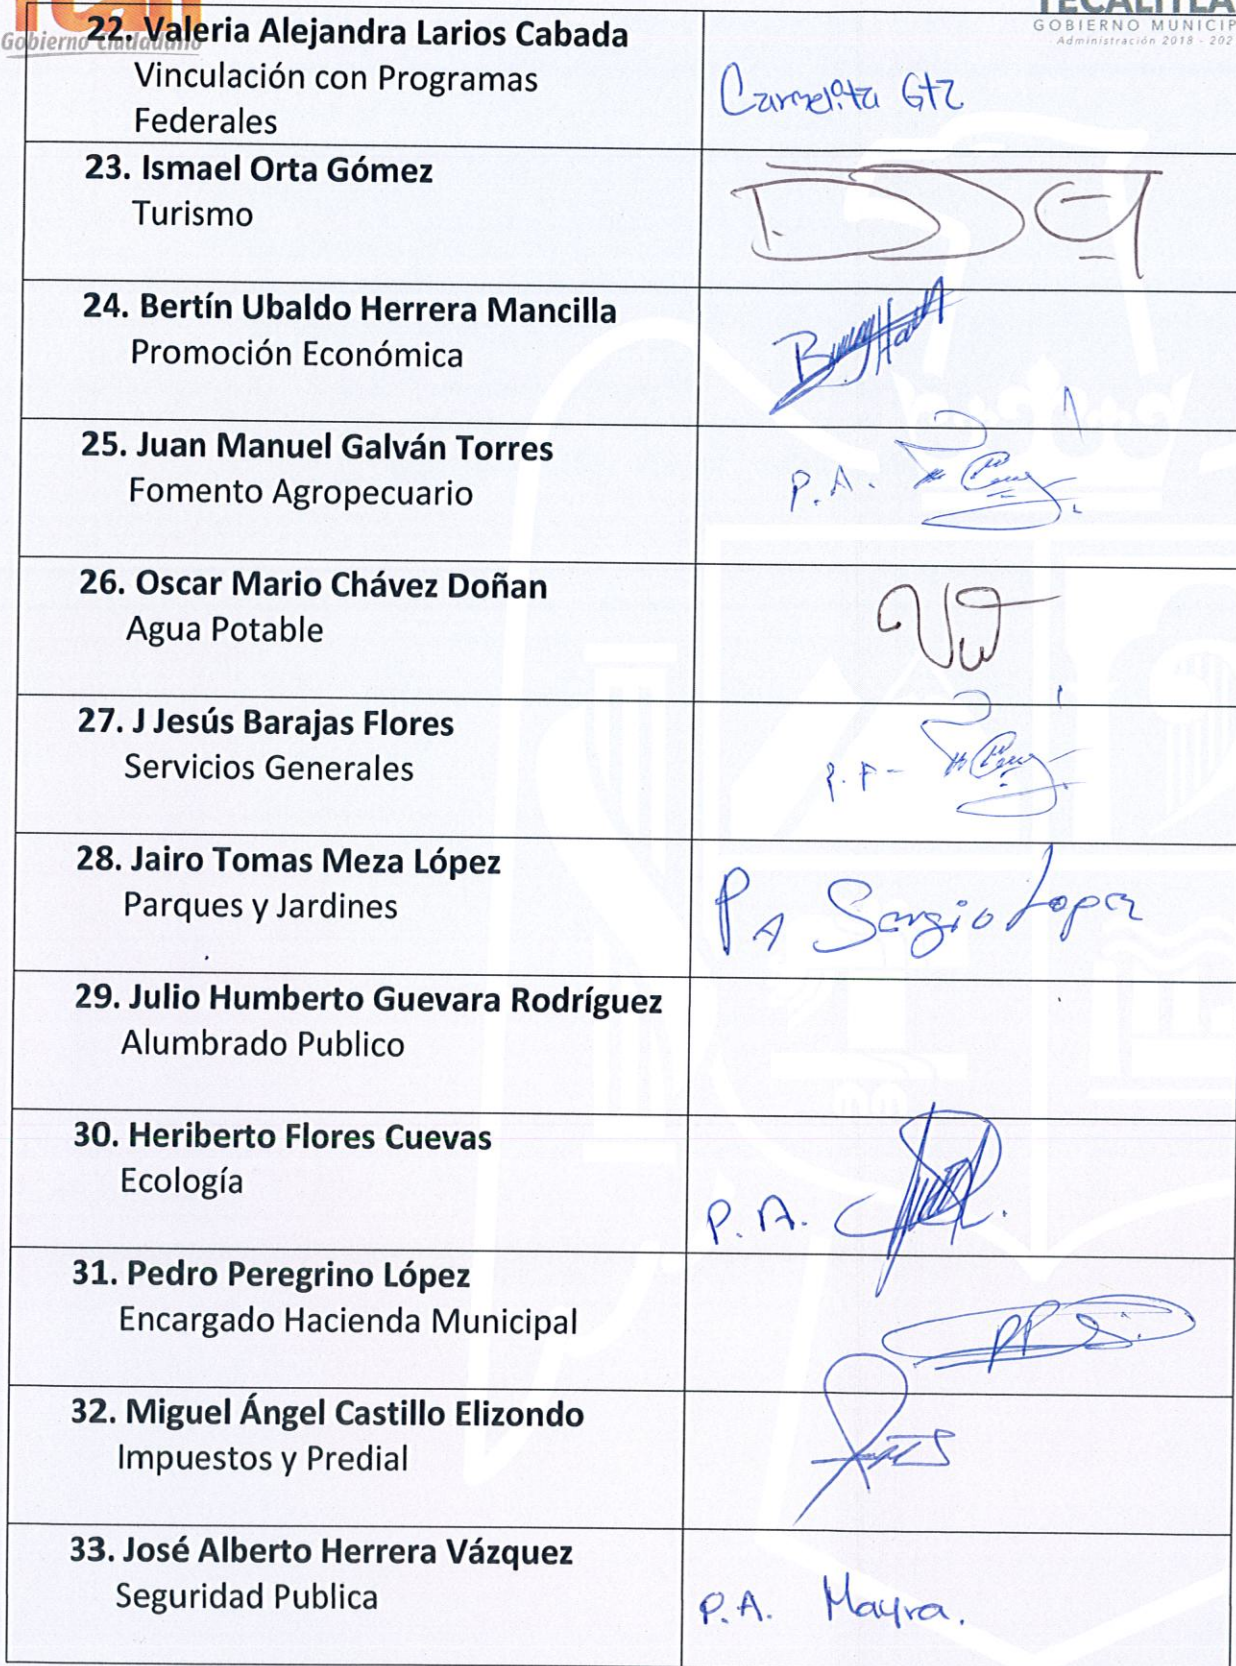 Gobierno Ciudadano
TECALITLÁ
GOBIERNO MUNICIP
Administración 2018 - 202
22. Valeria Alejandra Larios Cabada
Vinculación con Programas
Federales
Carmelita Gtz
23. Ismael Orta Gómez
Turismo
24. Bertín Ubaldo Herrera Mancilla
Promoción Económica
25. Juan Manuel Galván Torres
Fomento Agropecuario
P.A.
26. Oscar Mario Chávez Doñan
Agua Potable
27. J Jesús Barajas Flores
Servicios Generales
28. Jairo Tomas Meza López
Parques y Jardines
PA Sergio Lopez
29. Julio Humberto Guevara Rodríguez
Alumbrado Publico
30. Heriberto Flores Cuevas
Ecología
P.A.
31. Pedro Peregrino López
Encargado Hacienda Municipal
32. Miguel Ángel Castillo Elizondo
Impuestos y Predial
33. José Alberto Herrera Vázquez
Seguridad Publica
P.A. Mayra.